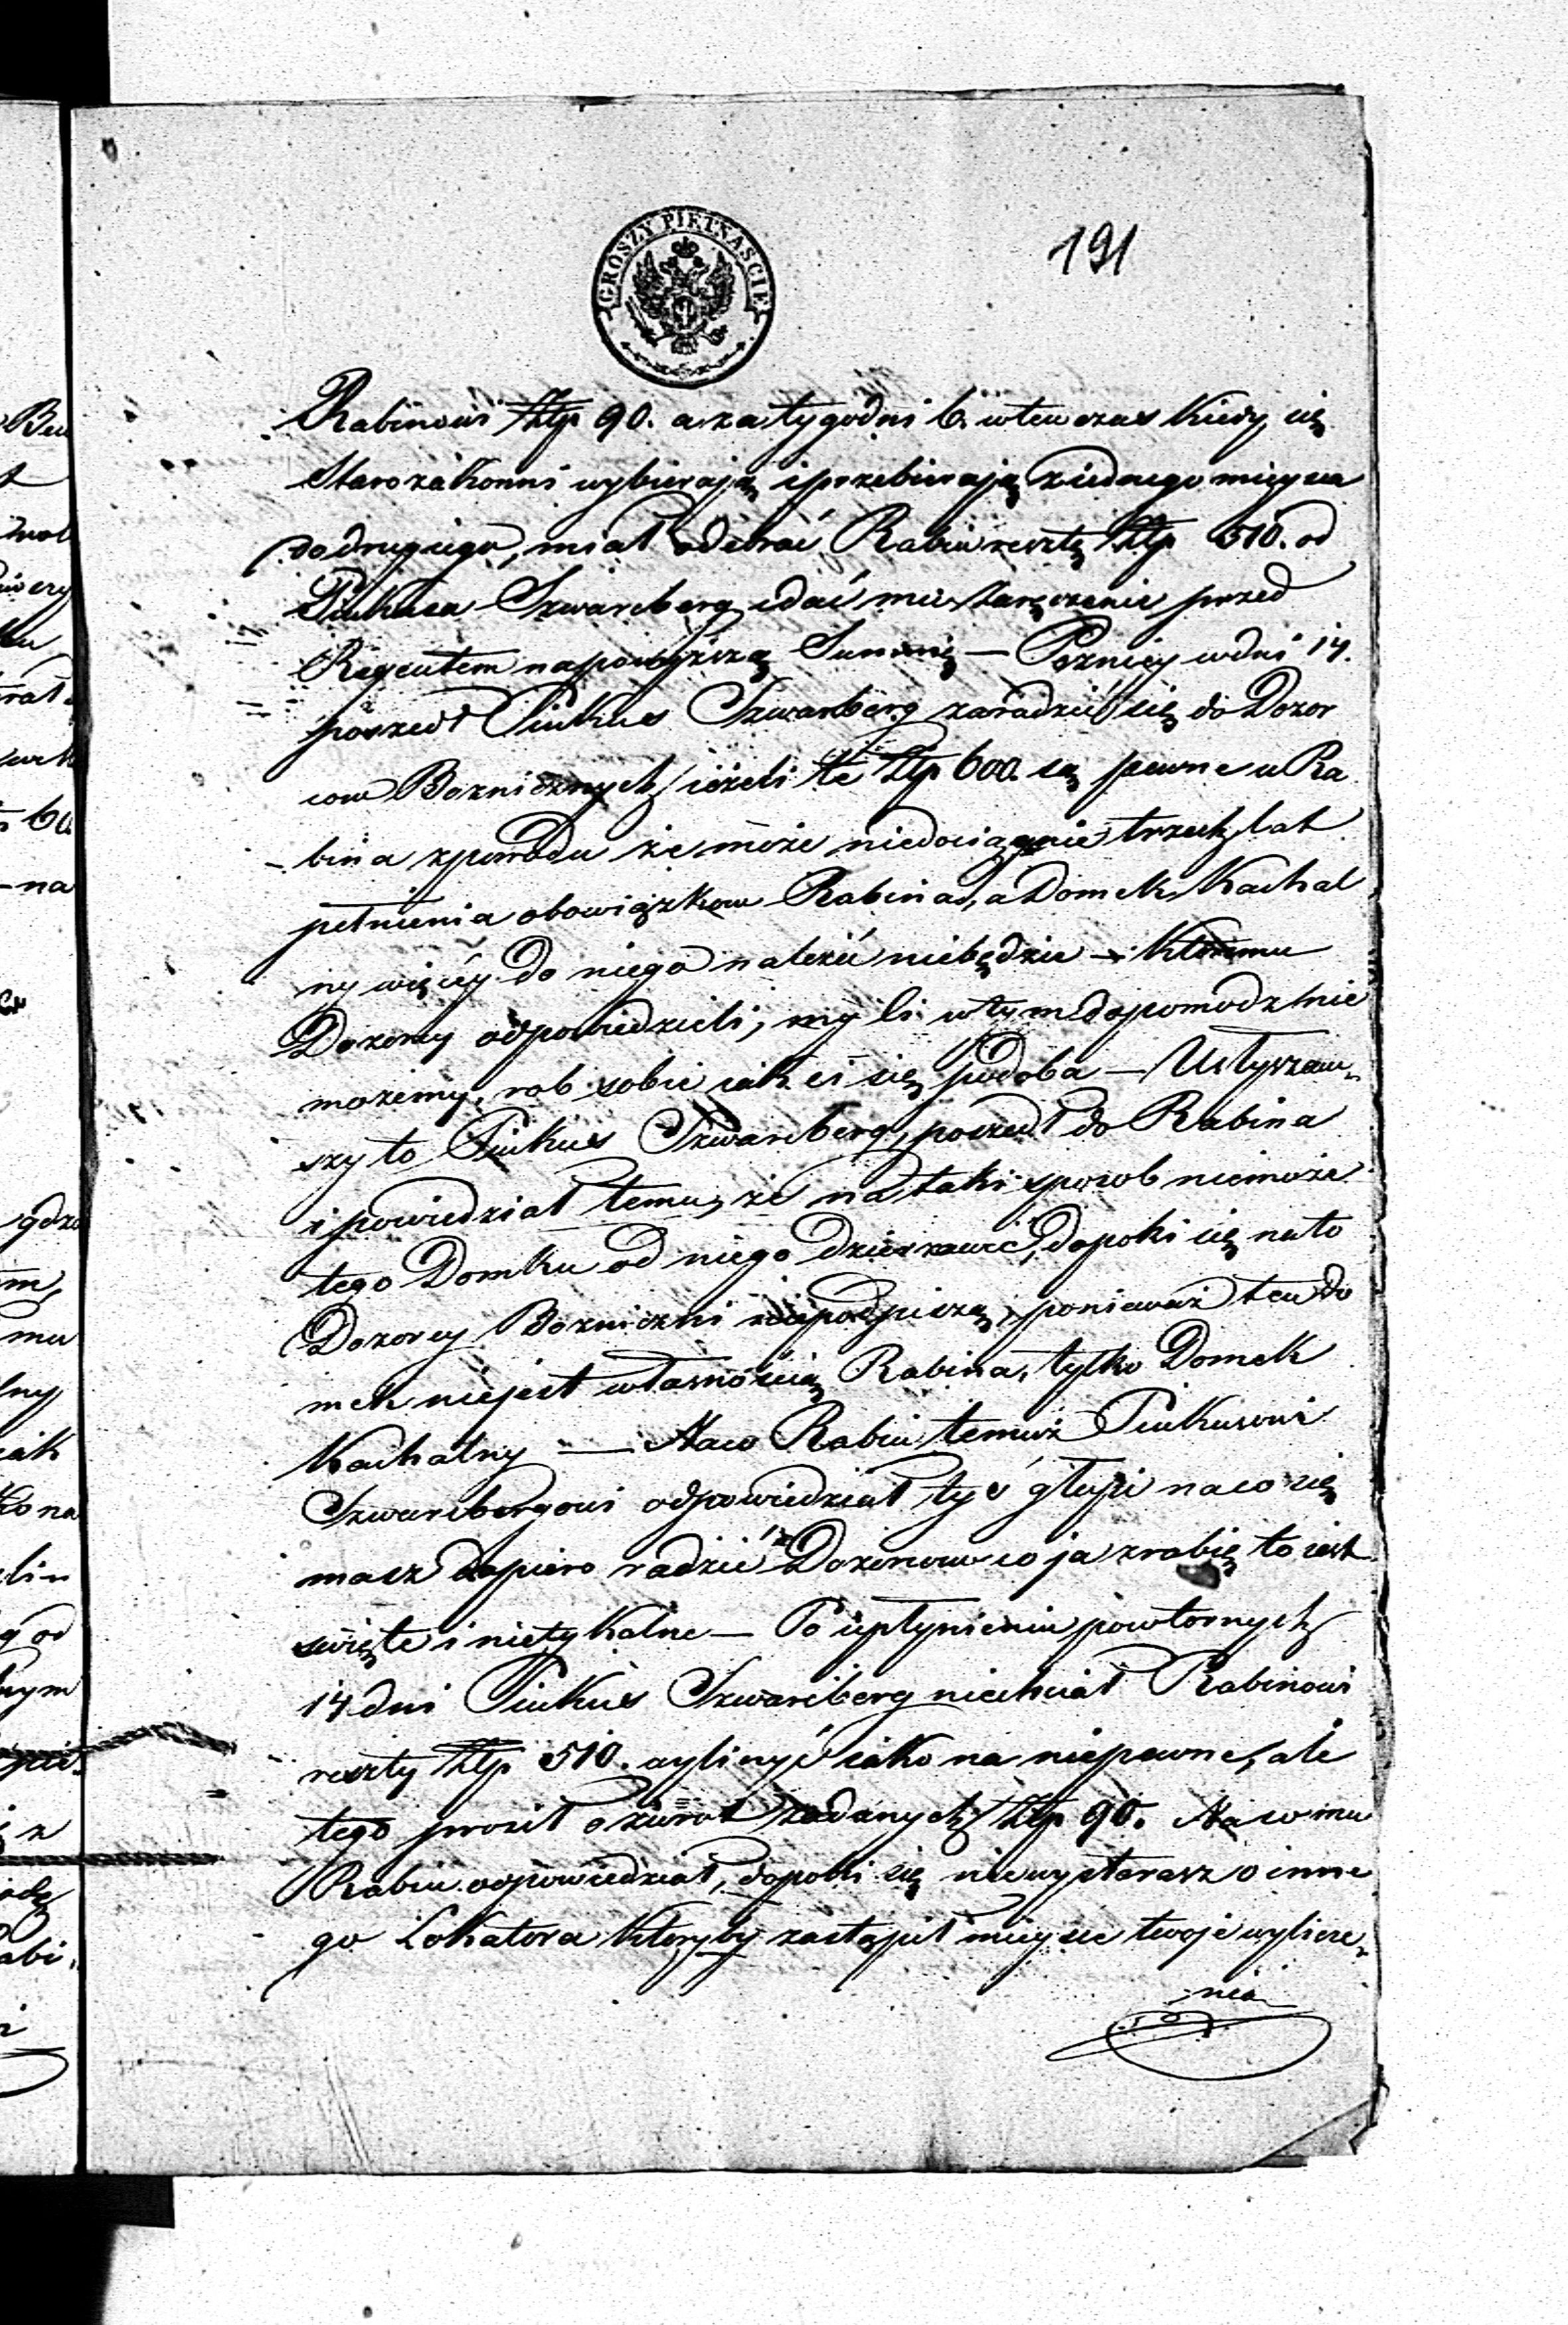 GROSZY PIETNAŚCIE
191
Rabinowi Złp 90. a za tygodni 6. wtenczas kiedy się
Starozakonni wybierają i przebierają z iednego mieysca
do drugiego, miał odebrać Rabin resztę Złp 510. od
Pinkusa Szwarcberg i dać mu zaręczenie przed
Regentem na powyższą Summę — Pozniey w dni 14.
poszedł Pinkus Szwarcberg zaradzić się do Dozor
cow Boznicznych ieżeli te Złp 600. są pewne u Ra
bina z powodu że może niedociągnie trzech lat
pełnienia obowiązkow Rabina, a Domek Kachal
ny więcey do niego należeć niebędzie — Ktoremu
Dozorcy odpowiedzieli, my Ci w tym dopomodz nie
możemy, rob sobie iak ci się podoba — Usłyszaw-
szy to Pinkus Szwarcberg, poszedł do Rabina
i powiedział temu, że na taki sposob niemoże
tego Domku od niego dzierzawić, dopoki się na to
Dozorcy Bozniczni niepodpiszą, ponieważ ten Do
mek niejest własnością Rabina, tylko Domek
Kachalny — Naco Rabin temuż Pinkusowi
Szwarcbergowi odpowiedział, tyś głupi naco się
masz dopiero radzić Dozorcow co ja zrobię to iest
święte i nietykalne — Po upłynieniu powtornych
14 dni Pinkus Szwarcberg niechciał Rabinowi
reszty Złp 510. wyliczyć iako na niepewne, ale
tego prosił o zwrot zadanych Złp 90. Naco mu
Rabin odpowiedział, dopoki się niewystarasz o inne
go Lokatora ktoryby zastąpił mieysce twoje wylicze-
nia